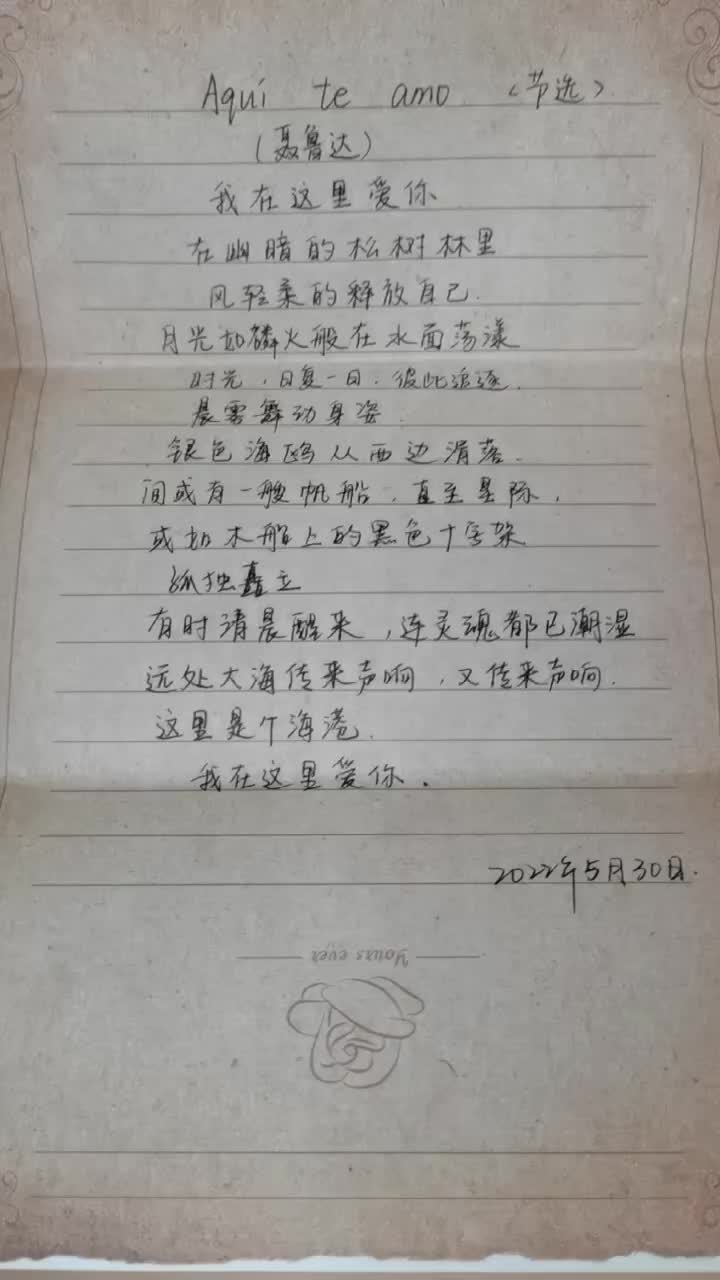 Aquí te amo （节选）
（聂鲁达）
我在这里爱你
在幽暗的松树林里
风轻柔的释放自己.
月光如磷火般在水面荡漾
时光，日复一日，彼此追逐.
晨雾舞动身姿.
银色海鸥从西边滑落.
间或有一艘帆船，直至星际，
或如木船上的黑色十字架
孤独矗立
有时清晨醒来，连灵魂都已潮湿
远处大海传来声响，又传来声响.
这里是个海港.
我在这里爱你.
2022年5月30日.
Yours ever